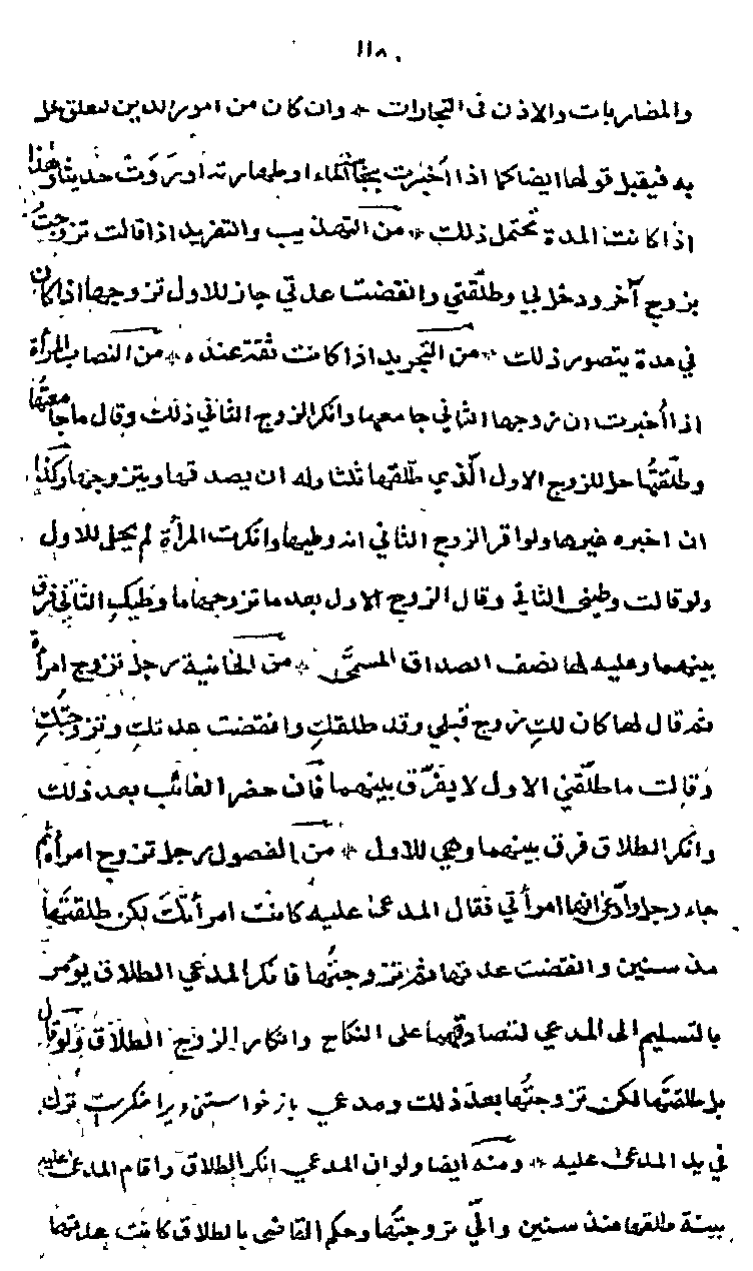 ١١٨
والمضاربات والاذن فى التجارات * وان كان من امور الدين تتعلق حل
به فيقبل قولها ايضا كما اذا أخبرت بنجاسة الماء او طهارته او رَوَتْ حديثا وهذا
اذا كانت المدة تحتمل ذلك * من التهذيب والتفريد اذا قالت تزوجتُ
بزوج آخر ودخل بي وطلّقني وانقضت عدتي جاز للاول تزوجها اذا كان
في مدة يتصور ذلك * من التجريد اذا كانت ثقة عنده * من النصاب المرأة
اذا أخبرت ان زوجها الثاني جامعها وانكر الزوج الثاني ذلك وقال ما جامعتُها
وطلّقتُها حل للزوج الاول الّذي طلّقها ثلثا وله ان يصدقها ويتزوجها وكذا
ان اخبره غيرها ولو اقر الزوج الثاني انه وطيها وانكرت المرأة لم يحل للاول
ولو قالت وطيني الثاني وقال الزوج الاول بعد ما تزوجها ما وطيكِ الثاني فرق
بينهما وعليه لها نصف الصداق المسمَّى * من الخانية رجل تزوج امرأة
ثم قال لها كان لكِ زوج قبلي وقد طلقكِ وانقضت عدتكِ وتزوجتُكِ
وقالت ما طلّقني الاول لا يفرّق بينهما فان حضر الغائب بعد ذلك
وانكر الطلاق فرق بينهما وهي للاول * من الفصول رجل تزوج امرأة ثم
جاء رجل وادّعى انها امرأتي فقال المدعى عليه كانت امرأتك لكن طلقتَها
مذ سنين وانقضت عدتها ثم تزوجتُها فانكر المدعي الطلاق يؤمر
بالتسليم الى المدعي لتصادقهما على النكاح وانكار الزوج الطلاق ولو قال
بل طلقتَها لكن تزوجتُها بعد ذلك ومدعي باز خواستن ويرا منكرست ترك
في يد المدعى عليه * ومنه ايضا ولو ان المدعي انكر الطلاق واقام المدعى عليه
بينة طلقها منذ سنين واني تزوجتُها وحكم القاضى بالطلاق كانت عدتها